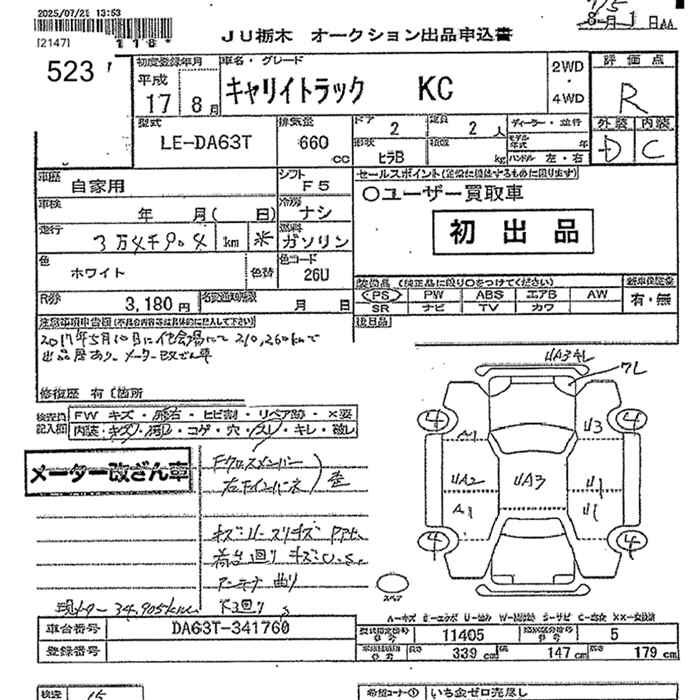 2025/07/25 13:53
[2147]
118*
8月1日
JU栃木 オークション出品申込書
523
初度登録年月
平成
17 8月
車名・グレード
キャリイトラック KC
2WD
・
4WD
評価点
R
外装 内装
D C
型式
LE-DA63T
排気量
660
cc
ドア
2
定員
2人
形状
ヒラB
積載
kg
ディーラー・並行
モデル年式 年
ハンドル 左・右
車歴
自家用
シフト
F5
セールスポイント
〇ユーザー買取車
初出品
車検
年 月( 日)
冷房
ナシ
走行
km
※
燃料
ガソリン
色
ホワイト
色替
色コード
26U
R券
3,180円
名変通知期限
月 日
装備品(純正品に限り〇をつけてください)
PS PW ABS エアB AW
SR ナビ TV カワ
新車保証書
有・無
後日品
注意事項申告欄
2017年5月10日に他会場にて210,260kmで
出品歴あり。メーター改ざん車
修復歴 有〔箇所
検査員記入欄
FW キズ・飛石・ヒビ割・リペア跡・×要
内装・キズ・汚レ・コゲ・穴・スレ・キレ・破レ
メーター改ざん車
Fクロスメンバー
歪
キズ
荷台回り キズ・U.S.
アンテナ曲り
下回りS
現メーター34,905km
UA34L
7L
4 4
A1 U3
UA2 UA3 U1
A1 U1
4 4
スペア
車台番号
DA63T-341760
型式指定番号
11405
類別区分番号
5
登録番号
長さ
339cm
幅
147cm
高さ
179cm
希望コーナー① いち金ゼロ売尽し